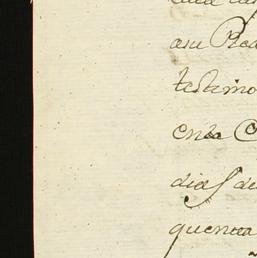 asu Rea
testimo
en la C
dias de
quenta